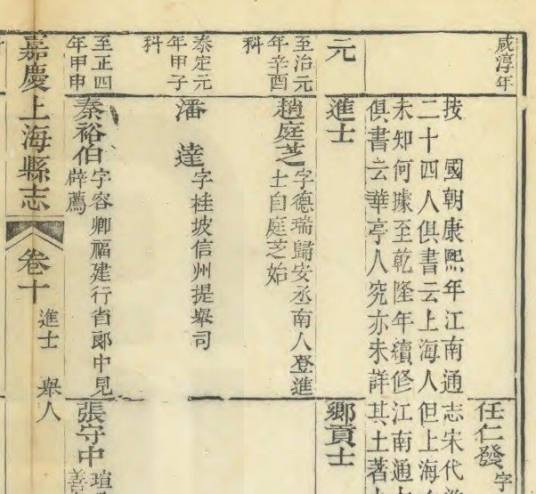 咸淳年
任仁發 字
按 國朝康熙年江南通志宋代
二十四人俱書云上海人但上海
未知何據至乾隆年續修江南通
俱書云華亭人究亦未詳其土著
元
進士
鄉貢士
至治元
年辛酉
科
趙庭芝 字德瑞歸安丞南人登進
士自庭芝始
泰定元
年甲子
科
潘 達 字桂坡信州提舉司
至正四
年甲申
秦裕伯 字容卿福建行省郎中見
辟薦
張守中 瑄
善
嘉慶上海縣志 卷十 進士 舉人